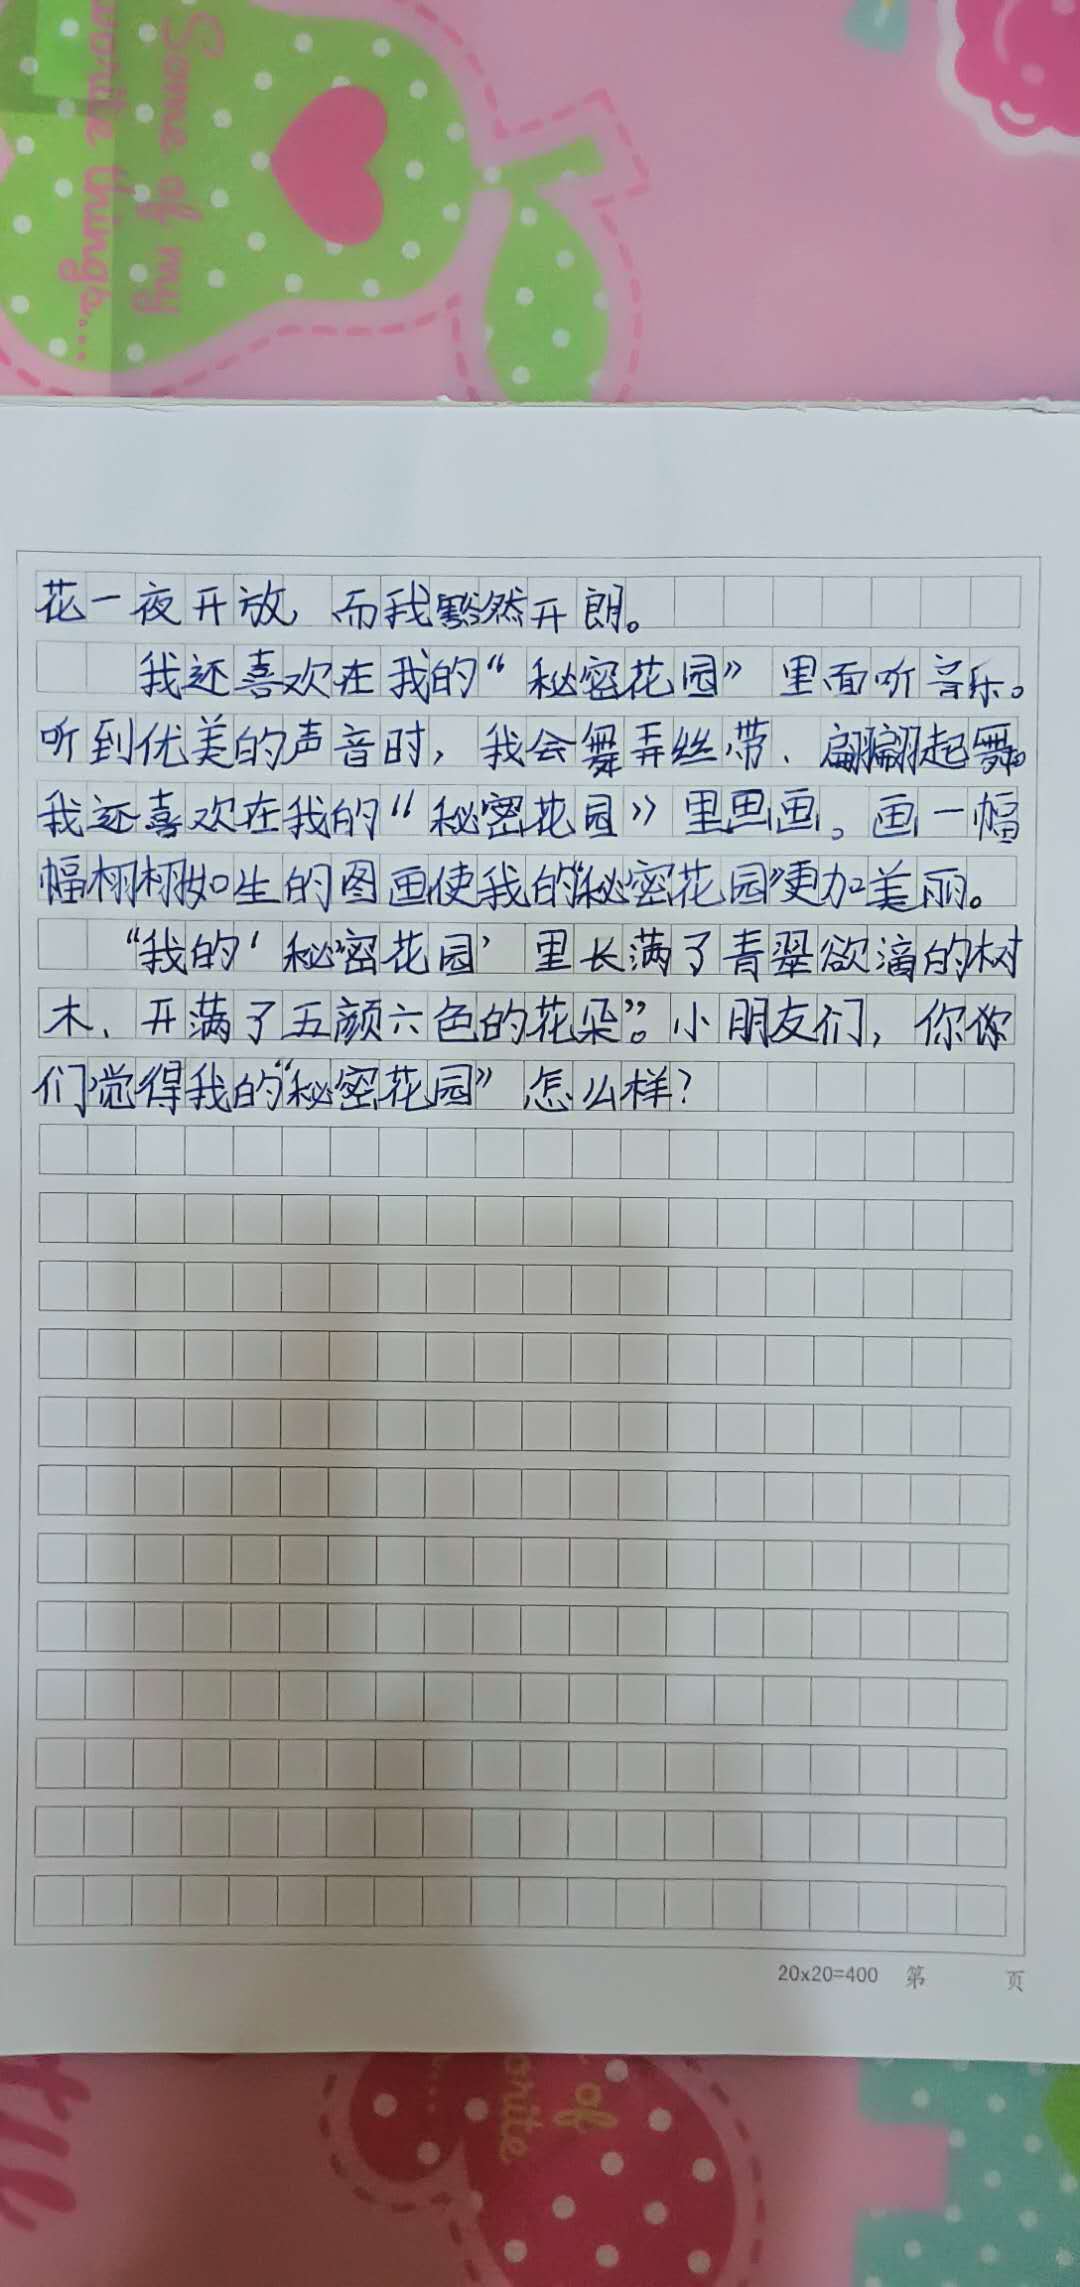 Some of my
vorite things...
花一夜开放，而我黟然开朗。
我还喜欢在我的“秘密花园”里面听音乐。
听到优美的声音时，我会舞弄丝带、翩翩起舞。
我还喜欢在我的“秘密花园”里画画。画一幅
幅栩栩如生的图画使我的“秘密花园”更加美丽。
“我的‘秘密花园’里长满了青翠欲滴的树
木、开满了五颜六色的花朵”。小朋友们，你你
们觉得我的“秘密花园”怎么样？
20x20=400 第 页
of
orite